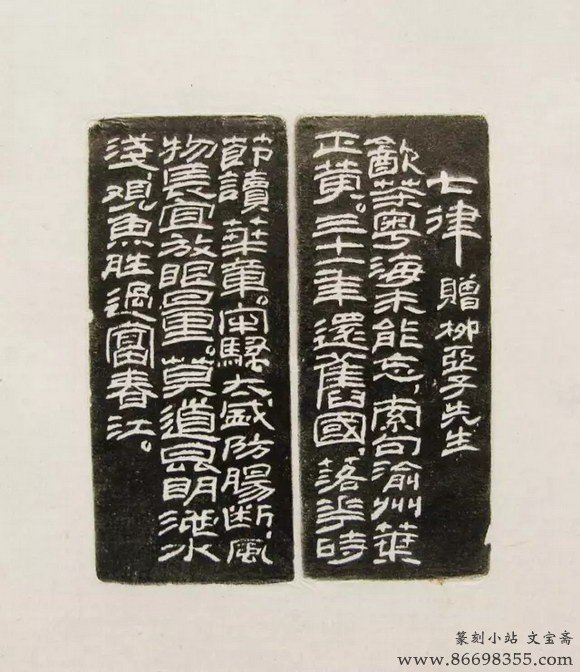 七律 贈柳亞子先生
飲茶粵海未能忘，索句渝州葉
正黄。三十一年還舊國，落花時
節讀華章。牢騷太盛防腸斷，風
物長宜放眼量。莫道昆明池水
淺，观魚胜過富春江。
篆刻小站 文宝斋
www.86698355.com